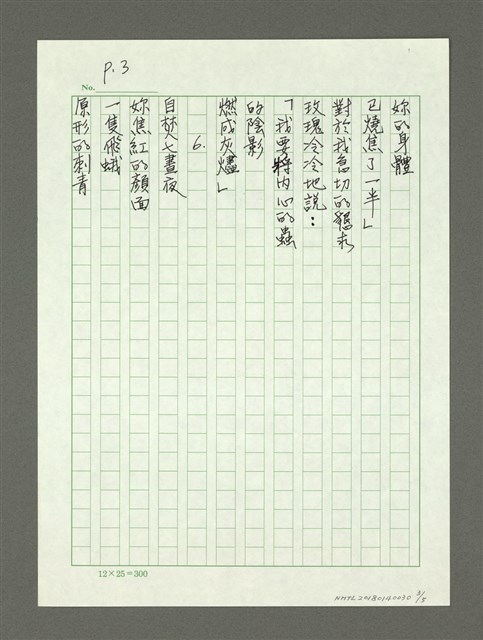 P.3
No.
妳的身體
已燒焦了一半」
對於我急切的懇求
玫瑰冷冷地説：
「我要將內心的蟲
的陰影
燃成灰燼」
6.
自焚七晝夜
妳焦紅的顏面
一隻飛蛾
原形的刺青
12×25＝300
NMTL20180140030 3/5